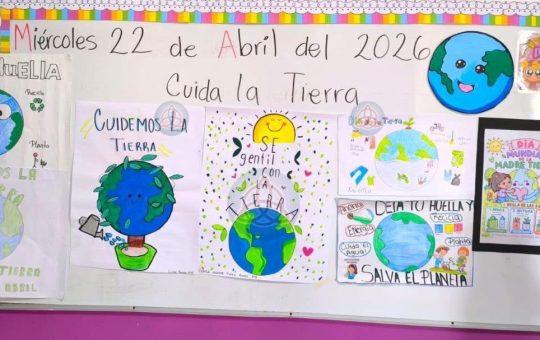 Miércoles 22 de Abril del 2026
Cuida la Tierra
HUELLA
Recicla
Planta
TIERRA
ABRIL
CUIDEMOS LA
TIERRA
SE
gentil
con
LA
TIERRA
Tierra
DEJA TU HUELLA Y
Ahorra
Energía
Cuida el
Agua
Recicla
Planta
SALVA EL PLANETA
DÍA
MUNDIAL
DE LA
MADRE TIERRA